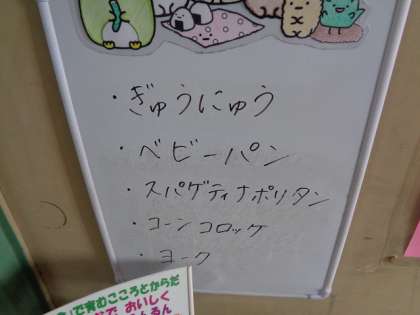 ・ぎゅうにゅう
・ベビーパン
・スパゲティナポリタン
・コーンコロッケ
・ヨーク
で育むこころとからだ
で おいしく